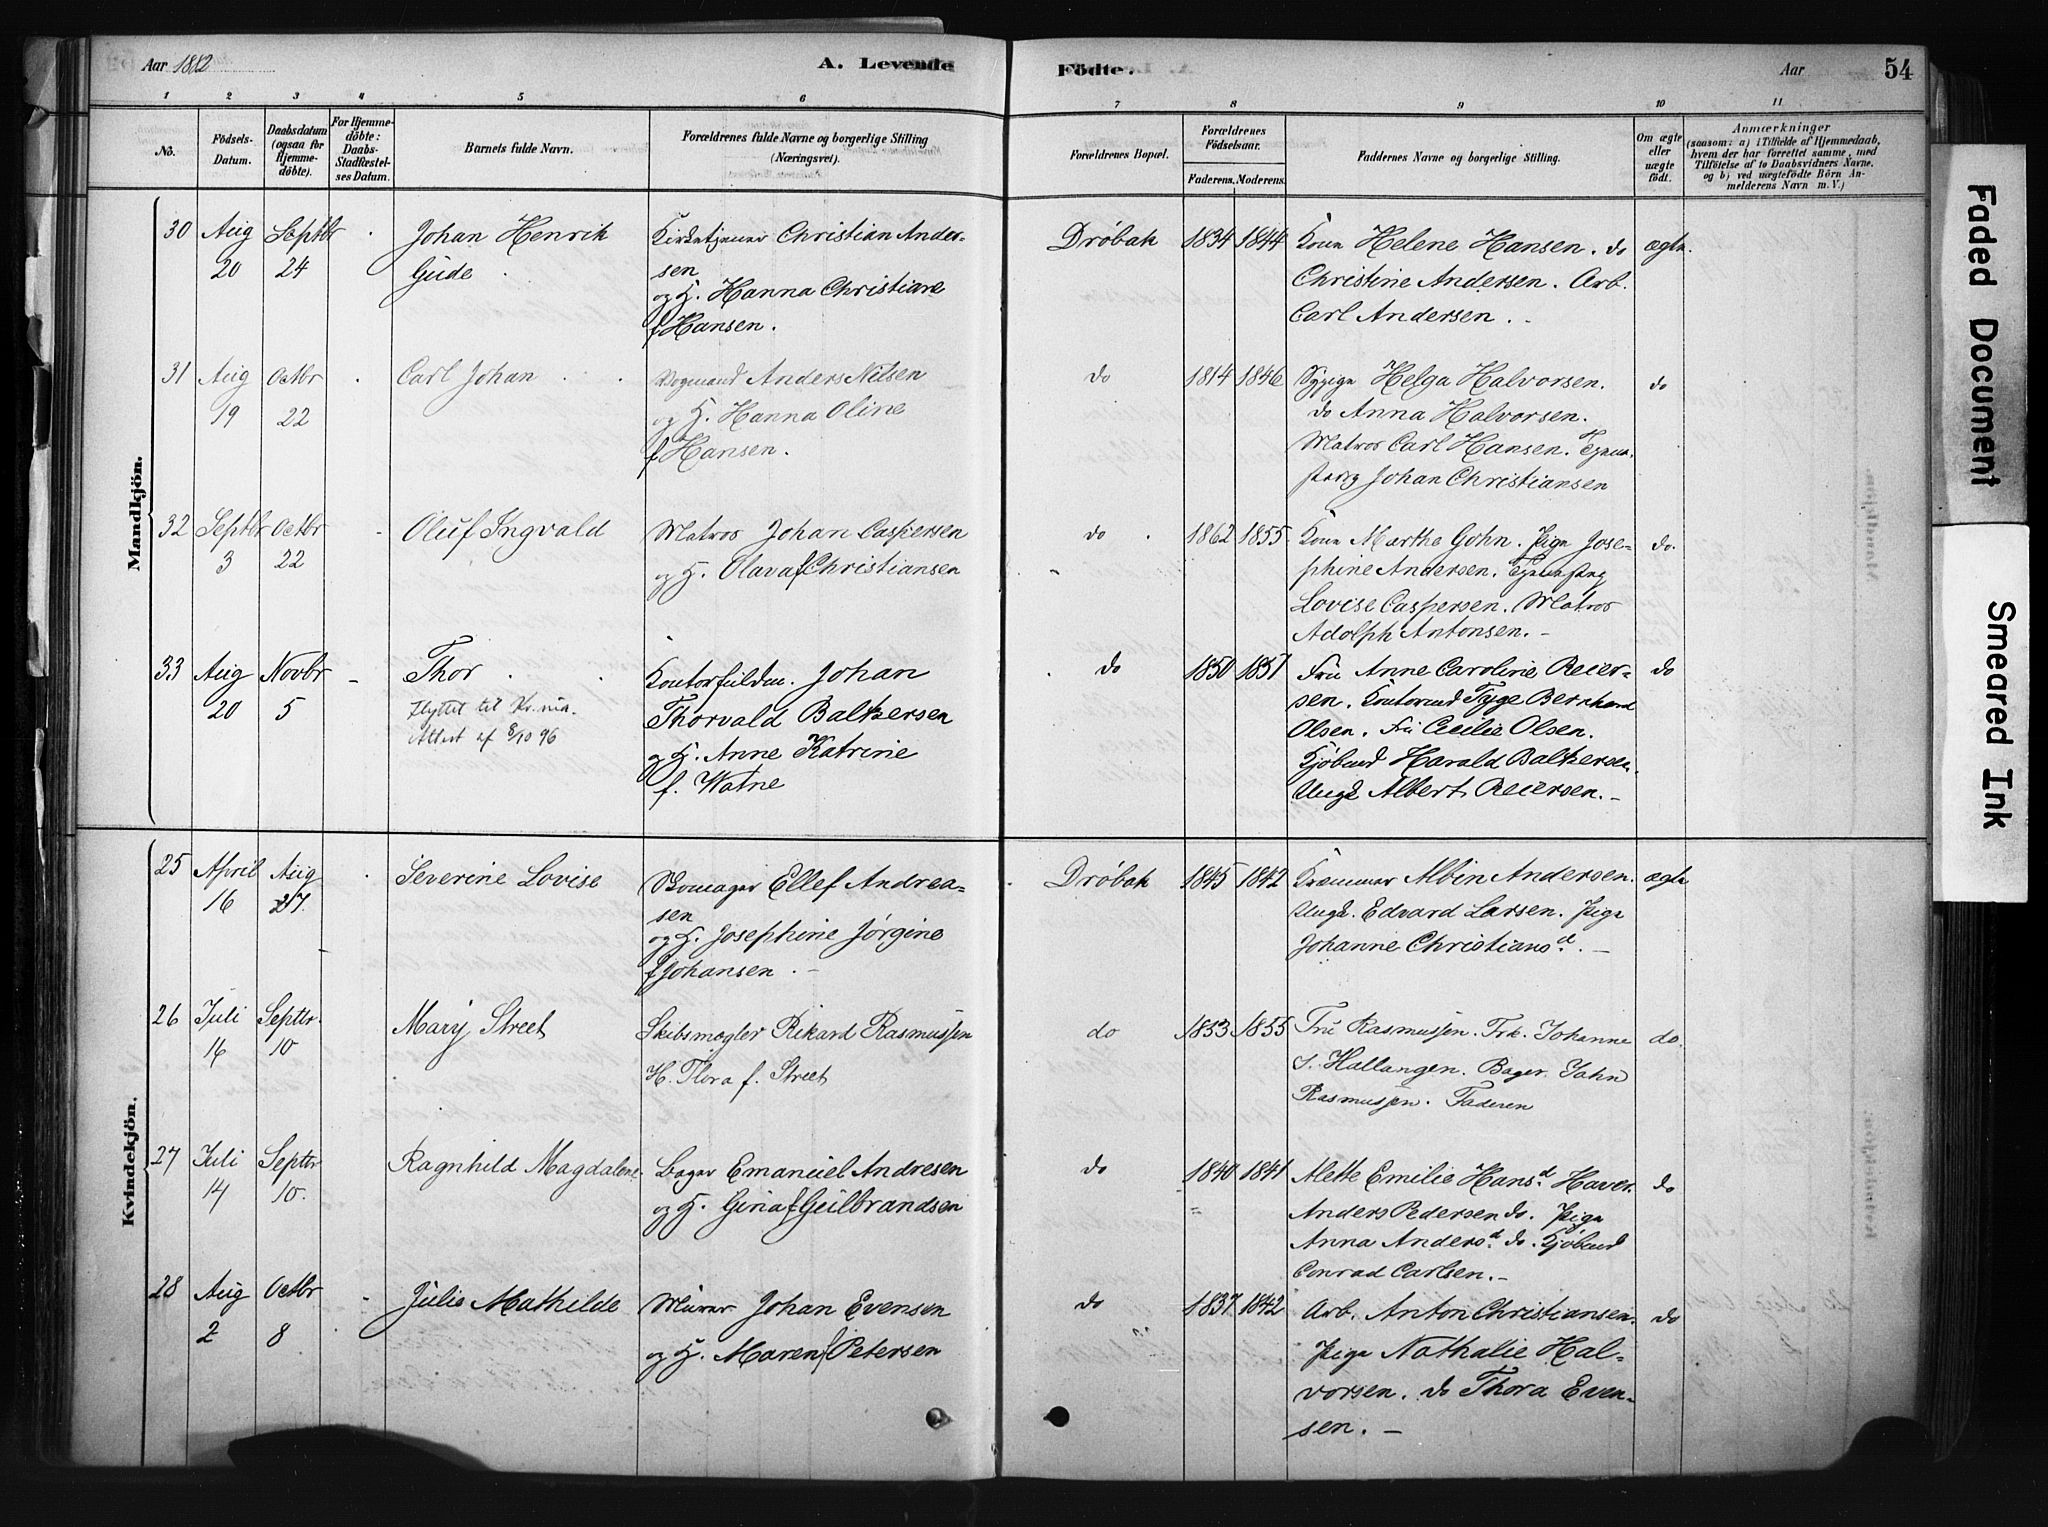 Aar 1882
A. Levende
Födte.
Aar
54
1 2 3 4 5 6 7 8 9 10 11
No.
Födsels-
Datum.
Daabsdatum
(ogsaa for
Hjemme-
döbte).
For Hjemme-
döbte:
Daabs-
Stadfæstel-
ses Datum.
Barnets fulde Navn.
Forældrenes fulde Navne og borgerlige Stilling
(Næringsvei).
Forældrenes Bopæl.
Forældrenes
Födselsaar.
Faderens. Moderens.
Faddernes Navne og borgerlige Stilling.
Om ægte
eller
uægte
födt.
Anmærkninger
(saasom: a) i Tilfælde af Hjemmedaab,
hvem der har forrettet samme, med
Tilföielse af to Daabsvidners Navne,
og b) ved uægtefödte Börn An-
melderens Navn m. V.)
Mandkjön.
30 Aug 20 Septbr 24
Johan Henrik
Gude
Kirketjener Christian Ander-
sen
og H. Hanna Christiane
f Hansen.
Drøbak 1834 1844
Kone Helene Hansen. do
Christine Andersen. Arb.
Carl Andersen.
ægte.
31 Aug 19 Octbr 22
Carl Johan
Vognmand Anders Nilsen
og H. Hanna Oline
f Hansen.
do 1814 1846
Sypige Helga Halvorsen.
do Anna Halvorsen.
Matros Carl Hansen.
Johan Christiansen
do
32 Septbr 3 Octbr 22
Oluf Ingvald
Matros Johan Caspersen
og H. Olava f Christiansen
do 1862 1855
Kone Marthe Gohn. Pige Jose-
phine Andersen.
Lovise Caspersen. Matros
Adolph Antonsen.
do.
33 Aug 20 Novbr 5
Thor
flyttet til Kr.nia.
Attest af 8/10 96
Kontorfuldm. Johan
Thorvald Baltzersen
og H. Anne Katrine
f. Watne
do 1850 1851
Fru Anne Caroline Reier-
sen. Tyge Bernhard
Olsen. Fru Cecilie Olsen.
Kjøbmd Harald Baltzersen.
Ungk Albert Reiersen.
do
Kvindekjön.
25 April 16 Aug 27.
Severine Lovise
Skomager Ellef Andrea-
sen
og H. Josephine Jørgine
f Johansen.
Drøbak 1845 1842
Kræmmer Albin Andersen.
Ungk. Edvard Larsen. Pige
Johanne Christiansd.
ægte
26 Juli 16 Septbr. 10
Mary Street
Skibsmægler Rikard Rasmussen
H. Flora f. Street
do 1853 1855
Fru Rasmussen. Frk. Johanne
S. Hallangen. Bager. John
Rasmussen. Faderen
do.
27 Juli 14 Septbr 10.
Ragnhild Magdalene
Bager Emanuel Andresen
og H. Gina f Geilbrandsen
do 1840 1841
Alette Emilie Hansd. Haver.
Anders Pedersen do. Pige
Anna Andersd. do. Kjøbmd
Conrad Carlsen.
do
28 Aug 2 Octbr 8
Julie Mathilde
Murer Johan Evensen
og H. Maren f Petersen
do 1837 1842
Arb. Anton Christiansen.
Pige Nathalie Hal-
vorsen. do Thora Even-
sen.
do
Faded Document
Smeared Ink